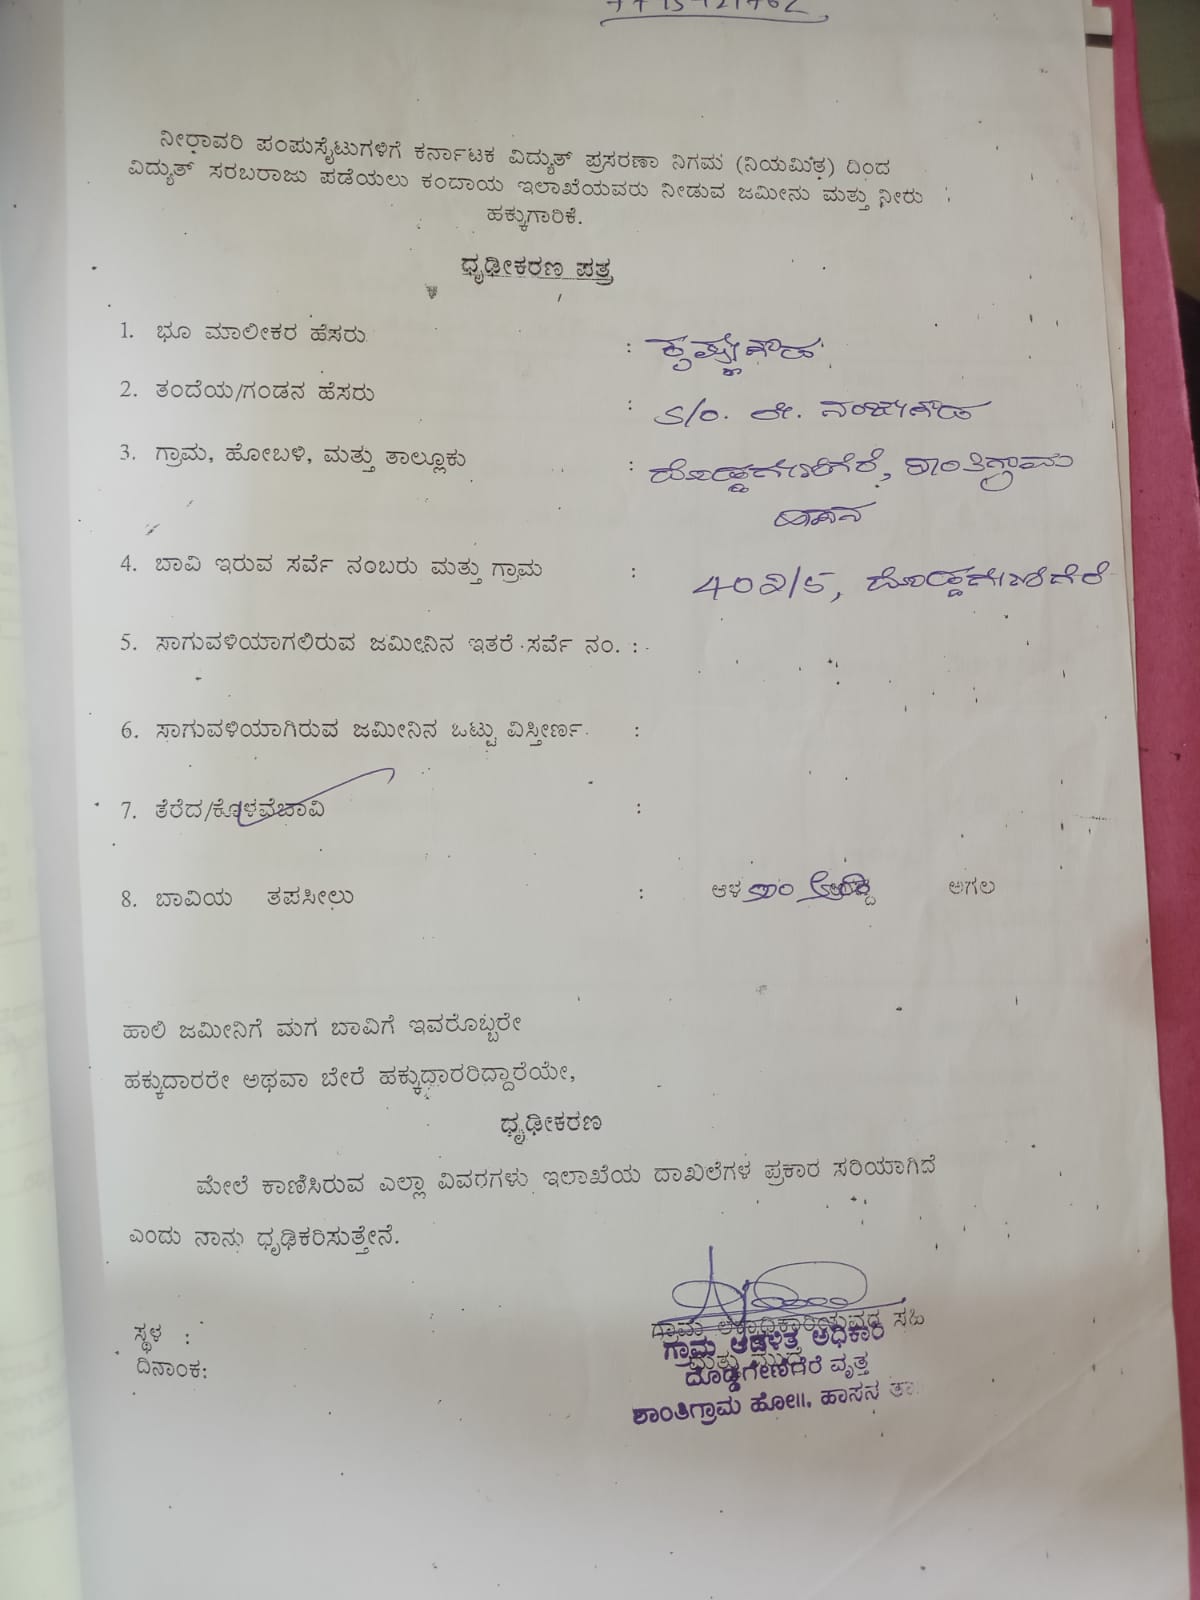 ನೀರಾವರಿ ಪಂಪುಸೈಟುಗಳಿಗೆ ಕರ್ನಾಟಕ ವಿದ್ಯುತ್ ಪ್ರಸರಣಾ ನಿಗಮ (ನಿಯಮಿತ) ದಿಂದ
ವಿದ್ಯುತ್ ಸರಬರಾಜು ಪಡೆಯಲು ಕಂದಾಯ ಇಲಾಖೆಯವರು ನೀಡುವ ಜಮೀನು ಮತ್ತು ನೀರು
ಹಕ್ಕುಗಾರಿಕೆ.
ಧೃಢೀಕರಣ ಪತ್ರ
1. ಭೂ ಮಾಲೀಕರ ಹೆಸರು : ಕೃಷ್ಣೇಗೌಡ
2. ತಂದೆಯ/ಗಂಡನ ಹೆಸರು : S/o. ಲೇ. ನಂಜೇಗೌಡ
3. ಗ್ರಾಮ, ಹೋಬಳಿ, ಮತ್ತು ತಾಲ್ಲೂಕು : ದೊಡ್ಡಗೇಣಿಗೆರೆ, ಶಾಂತಿಗ್ರಾಮ
ಹಾಸನ
4. ಬಾವಿ ಇರುವ ಸರ್ವೆ ನಂಬರು ಮತ್ತು ಗ್ರಾಮ : 402/5, ದೊಡ್ಡಗೇಣಿಗೆರೆ
5. ಸಾಗುವಳಿಯಾಗಲಿರುವ ಜಮೀನಿನ ಇತರೆ ಸರ್ವೆ ನಂ. :
6. ಸಾಗುವಳಿಯಾಗಿರುವ ಜಮೀನಿನ ಒಟ್ಟು ವಿಸ್ತೀರ್ಣ :
7. ತೆರೆದ/ಕೊಳವೆಬಾವಿ :
8. ಬಾವಿಯ ತಪಸೀಲು : ಆಳ ಅಗಲ
ಹಾಲಿ ಜಮೀನಿಗೆ ಮಗ ಬಾವಿಗೆ ಇವರೊಬ್ಬರೇ
ಹಕ್ಕುದಾರರೇ ಅಥವಾ ಬೇರೆ ಹಕ್ಕುಧಾರರಿದ್ದಾರೆಯೇ,
ಧೃಢೀಕರಣ
ಮೇಲೆ ಕಾಣಿಸಿರುವ ಎಲ್ಲಾ ವಿವರಗಳು ಇಲಾಖೆಯ ದಾಖಲೆಗಳ ಪ್ರಕಾರ ಸರಿಯಾಗಿದೆ
ಎಂದು ನಾನು ಧೃಢಿಕರಿಸುತ್ತೇನೆ.
ಸ್ಥಳ :
ದಿನಾಂಕ:
ಗ್ರಾಮ ಲೆಕ್ಕಾಧಿಕಾರಿಯವರ ಸಹಿ
ಮತ್ತು ಮುದ್ರೆ
ಗ್ರಾಮ ಆಡಳಿತ ಅಧಿಕಾರಿ
ದೊಡ್ಡಗೇಣಿಗೆರೆ ವೃತ್ತ
ಶಾಂತಿಗ್ರಾಮ ಹೋ||, ಹಾಸನ ತಾ